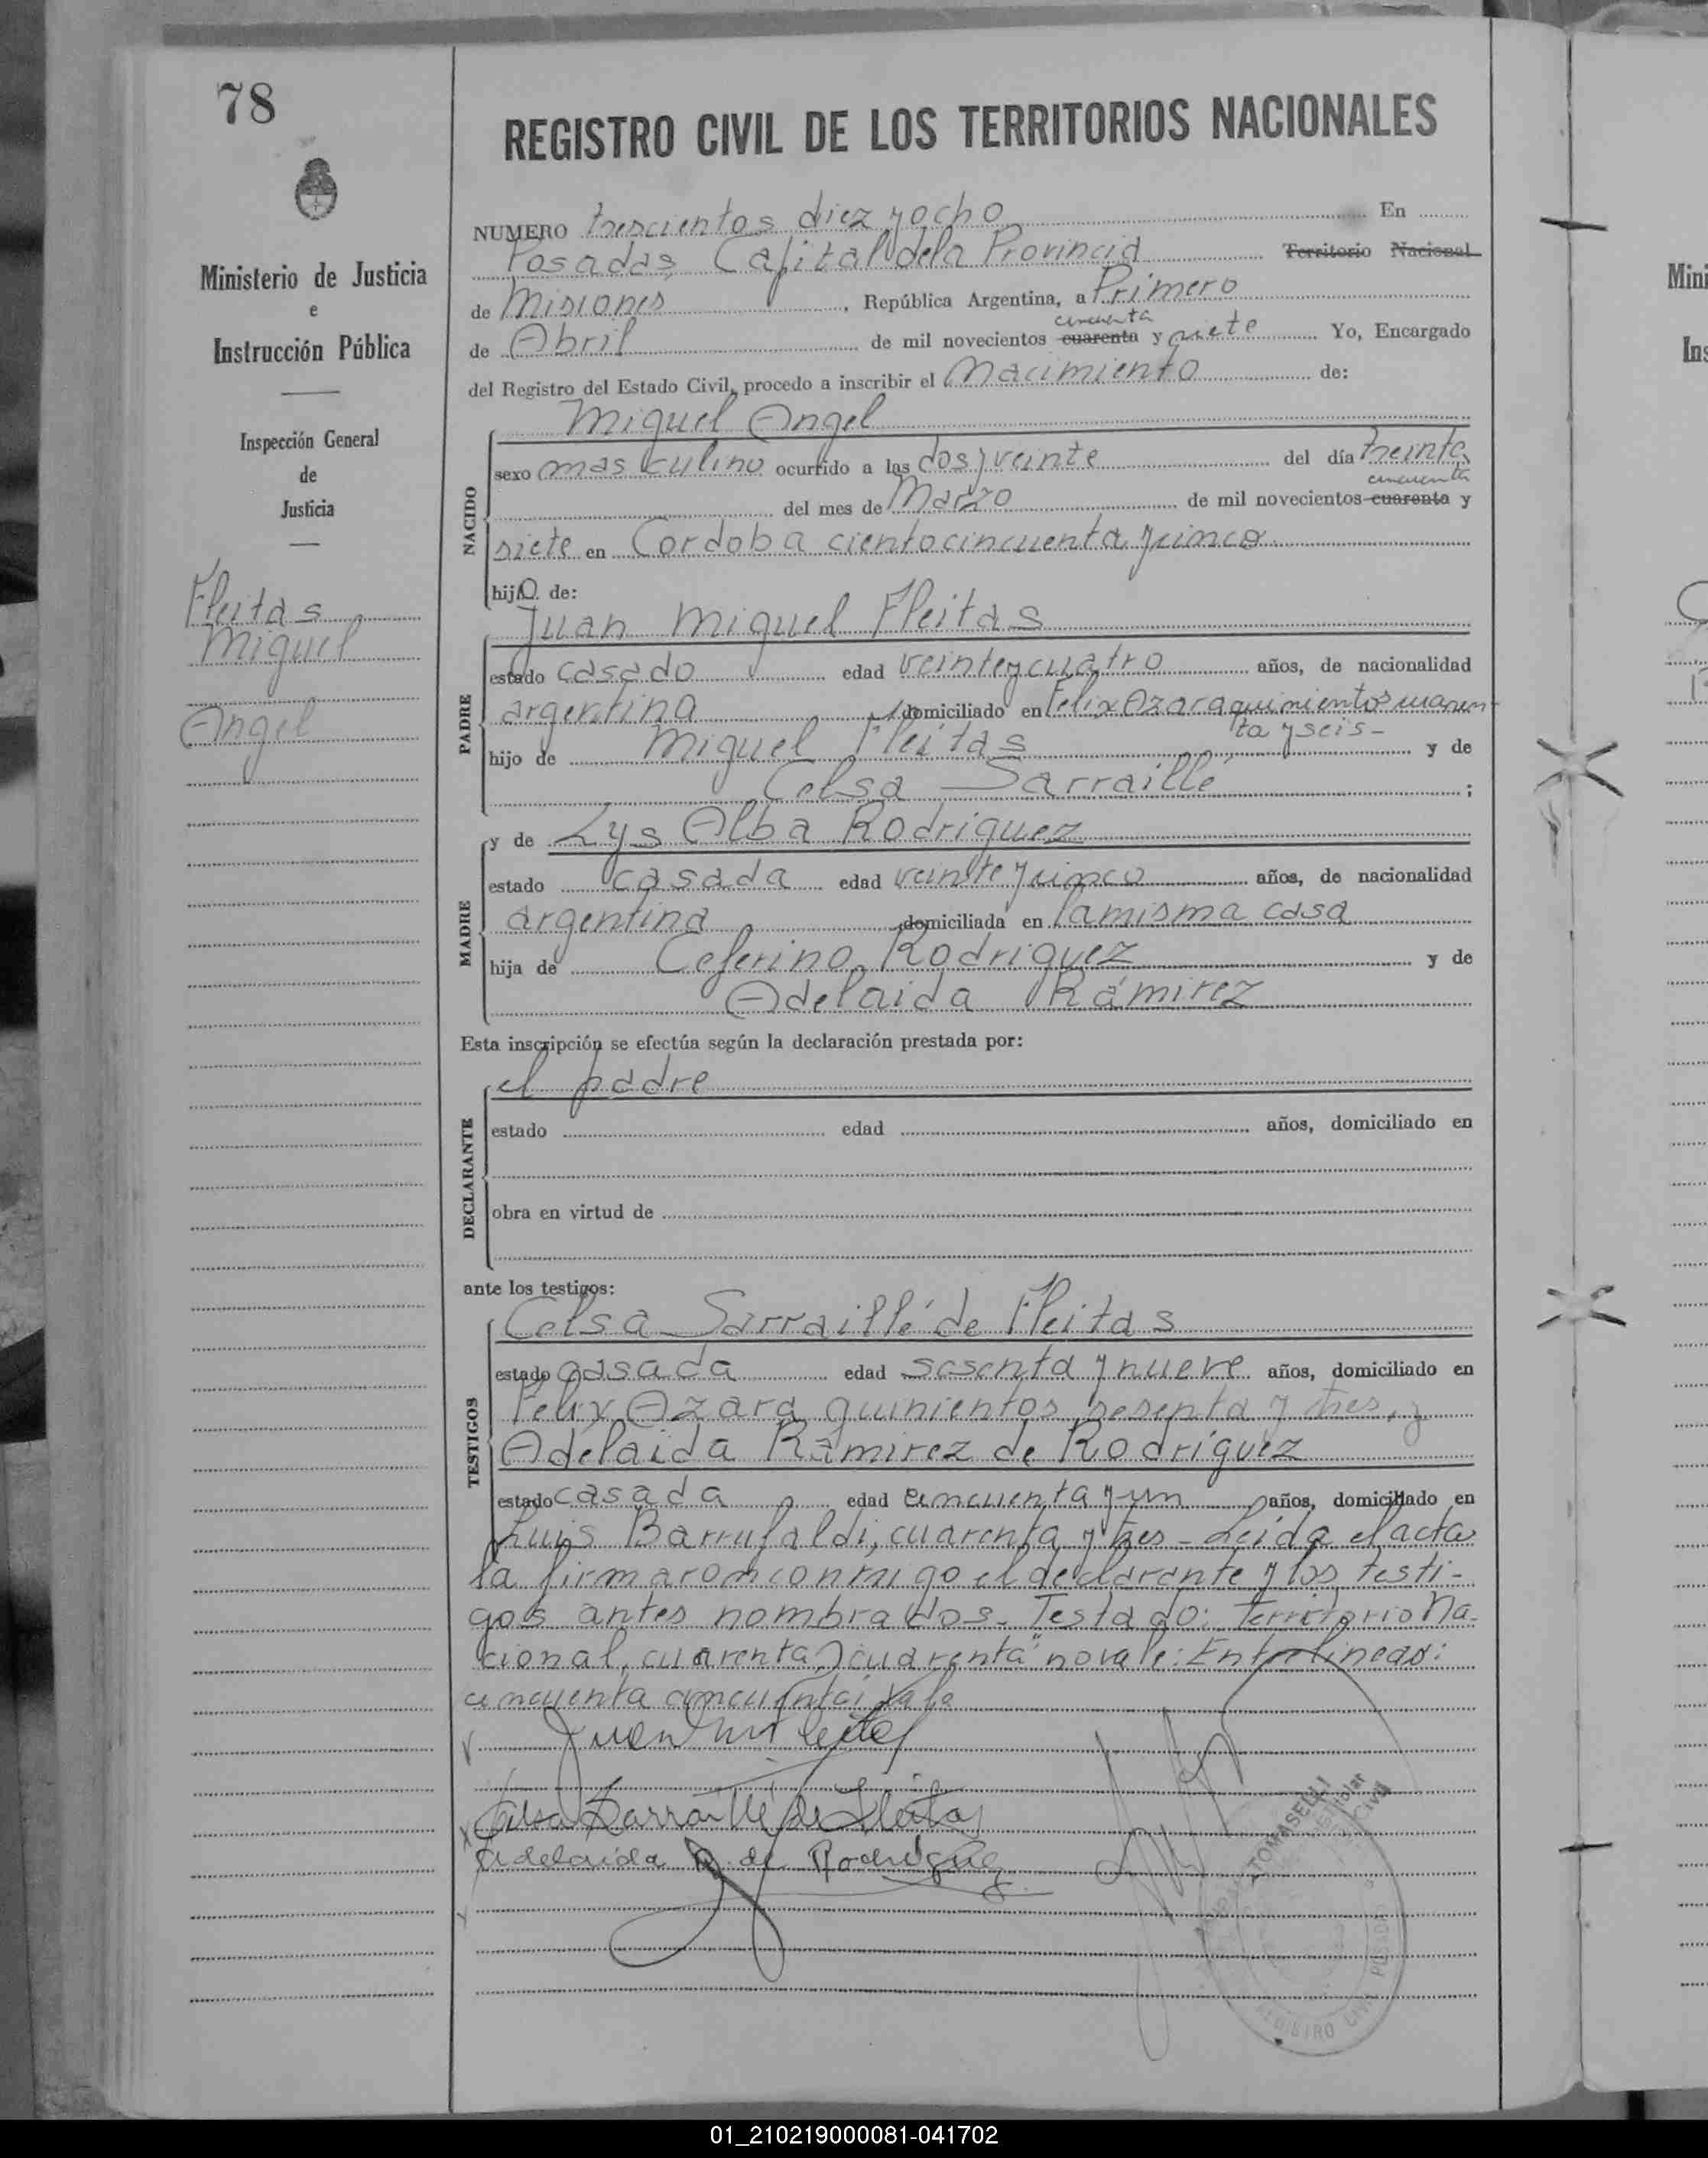 78
REGISTRO CIVIL DE LOS TERRITORIOS NACIONALES
Ministerio de Justicia
e
Instrucción Pública
Inspección General
de
Justicia
Fleitas
Miguel
Angel
NUMERO trescientos diez y ocho En
Posadas, Capital de la Provincia Territorio Nacional
de Misiones, República Argentina, a Primero
cincuenta
de Abril de mil novecientos cuarenta y siete Yo, Encargado
del Registro del Estado Civil, procedo a inscribir el Nacimiento de:
Miguel Angel
NACIDO
sexo masculino ocurrido a las dos y veinte del día treinta
cincuenta
del mes de Marzo de mil novecientos cuarenta y
siete en Cordoba ciento cincuenta y cinco
hijo de:
Juan Miguel Fleitas
PADRE
estado casado edad veinte y cuatro años, de nacionalidad
argentina domiciliado en Felix Azara quinientos cuaren-
ta y seis-
hijo de Miguel Fleitas y de
Celsa Sarraillé;
MADRE
y de Lys Alba Rodriguez
estado casada edad veinte y cinco años, de nacionalidad
argentina domiciliada en la misma casa
hija de Ceferino Rodriguez y de
Adelaida Rámirez
Esta inscripción se efectúa según la declaración prestada por:
el padre
DECLARANTE
estado edad años, domiciliado en
obra en virtud de
ante los testigos:
TESTIGOS
Celsa Sarraillé de Fleitas
estado casada edad sesenta y nueve años, domiciliado en
Felix Azara quinientos sesenta y tres, y
Adelaida Rámirez de Rodríguez
estado casada edad cincuenta y un años, domiciliado en
Luis Barrufaldi, cuarenta y tres - Leída el acta
la firmaron conmigo el declarante y los testi-
gos antes nombrados - Testado: Territorio Na-
cional, cuarenta, cuarenta" no vale: Entrelineas:
cincuenta cincuenta: Vale
Celsa Sarraillé de Fleitas
Adelaida R. de Rodríguez
TOMASELLI
Titular
Civil
REGISTRO CIVIL POSADAS
01_210219000081-041702